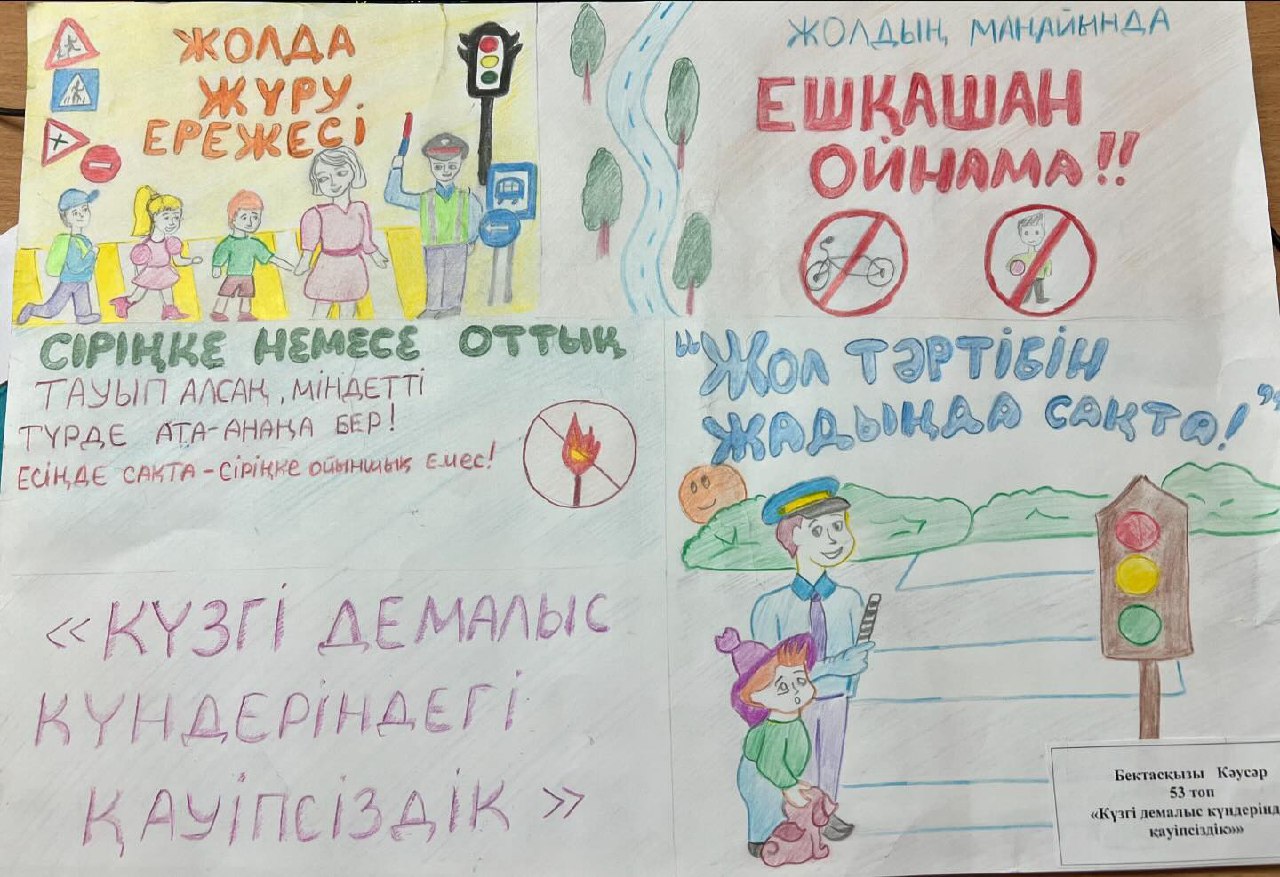 ЖОЛДА
ЖҮРУ
ЕРЕЖЕСІ
ЖОЛДЫҢ МАҢАЙЫНДА
ЕШҚАШАН
ОЙНАМА!!
СІРІҢКЕ НЕМЕСЕ ОТТЫҚ
ТАУЫП АЛСАҢ, МІНДЕТТІ
ТҮРДЕ АТА-АНАҢА БЕР!
ЕСІҢДЕ САҚТА - СІРІҢКЕ ОЙЫНШЫҚ ЕМЕС!
"ЖОЛ ТӘРТІБІН
ЖАДЫҢДА САҚТА!"
«КҮЗГІ ДЕМАЛЫС
КҮНДЕРІНДЕГІ
ҚАУІПСІЗДІК»
Бектасқызы Кәусәр
53 топ
«Күзгі демалыс күндерінд
қауіпсіздік»»